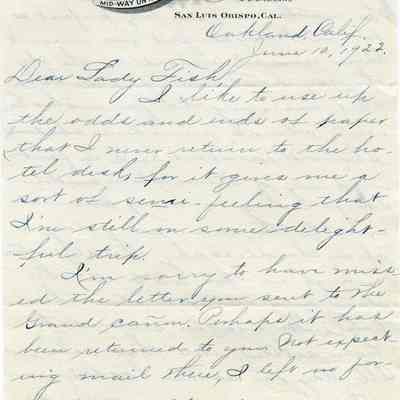 MID-WAY
SAN LUIS OBISPO, CAL.
Oakland Calif.
June 10, 1922.
Dear Lady Fish
I like to use up
the odds and ends of paper
that I never return to the ho-
tel desk, for it gives me a
sort of sense-feeling that
I'm still on some delight-
ful trip.
I'm sorry to have miss
ed the letter you sent to the
Grand cañon. Perhaps it has
been returned to you. Not expect-
ing mail there, I left no for-